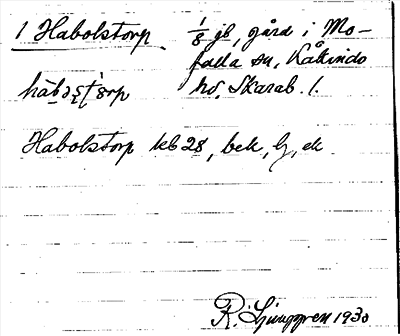 1 Habolstorp 1/8 jb, gård i Mo-
falla sn, Kåkinds
hd, Skarab. l.
Habolstorp kb 28, bek, , ek
R. Ljunggren 1930